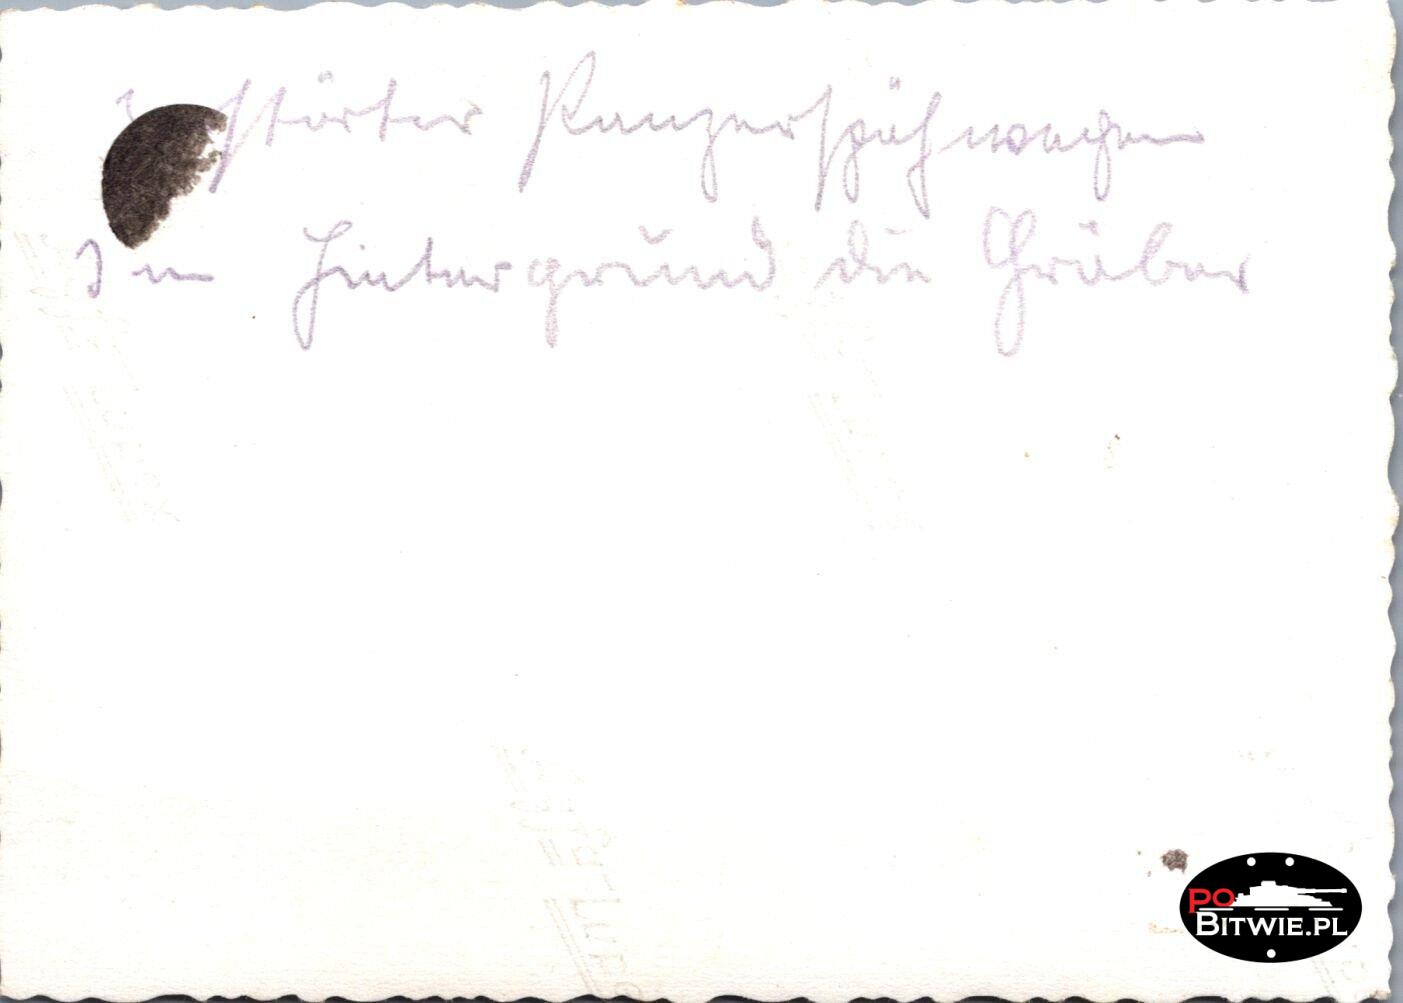 störter Panzerspähwagen
Im Hintergrund die Gräber
PO
BITWIE.PL